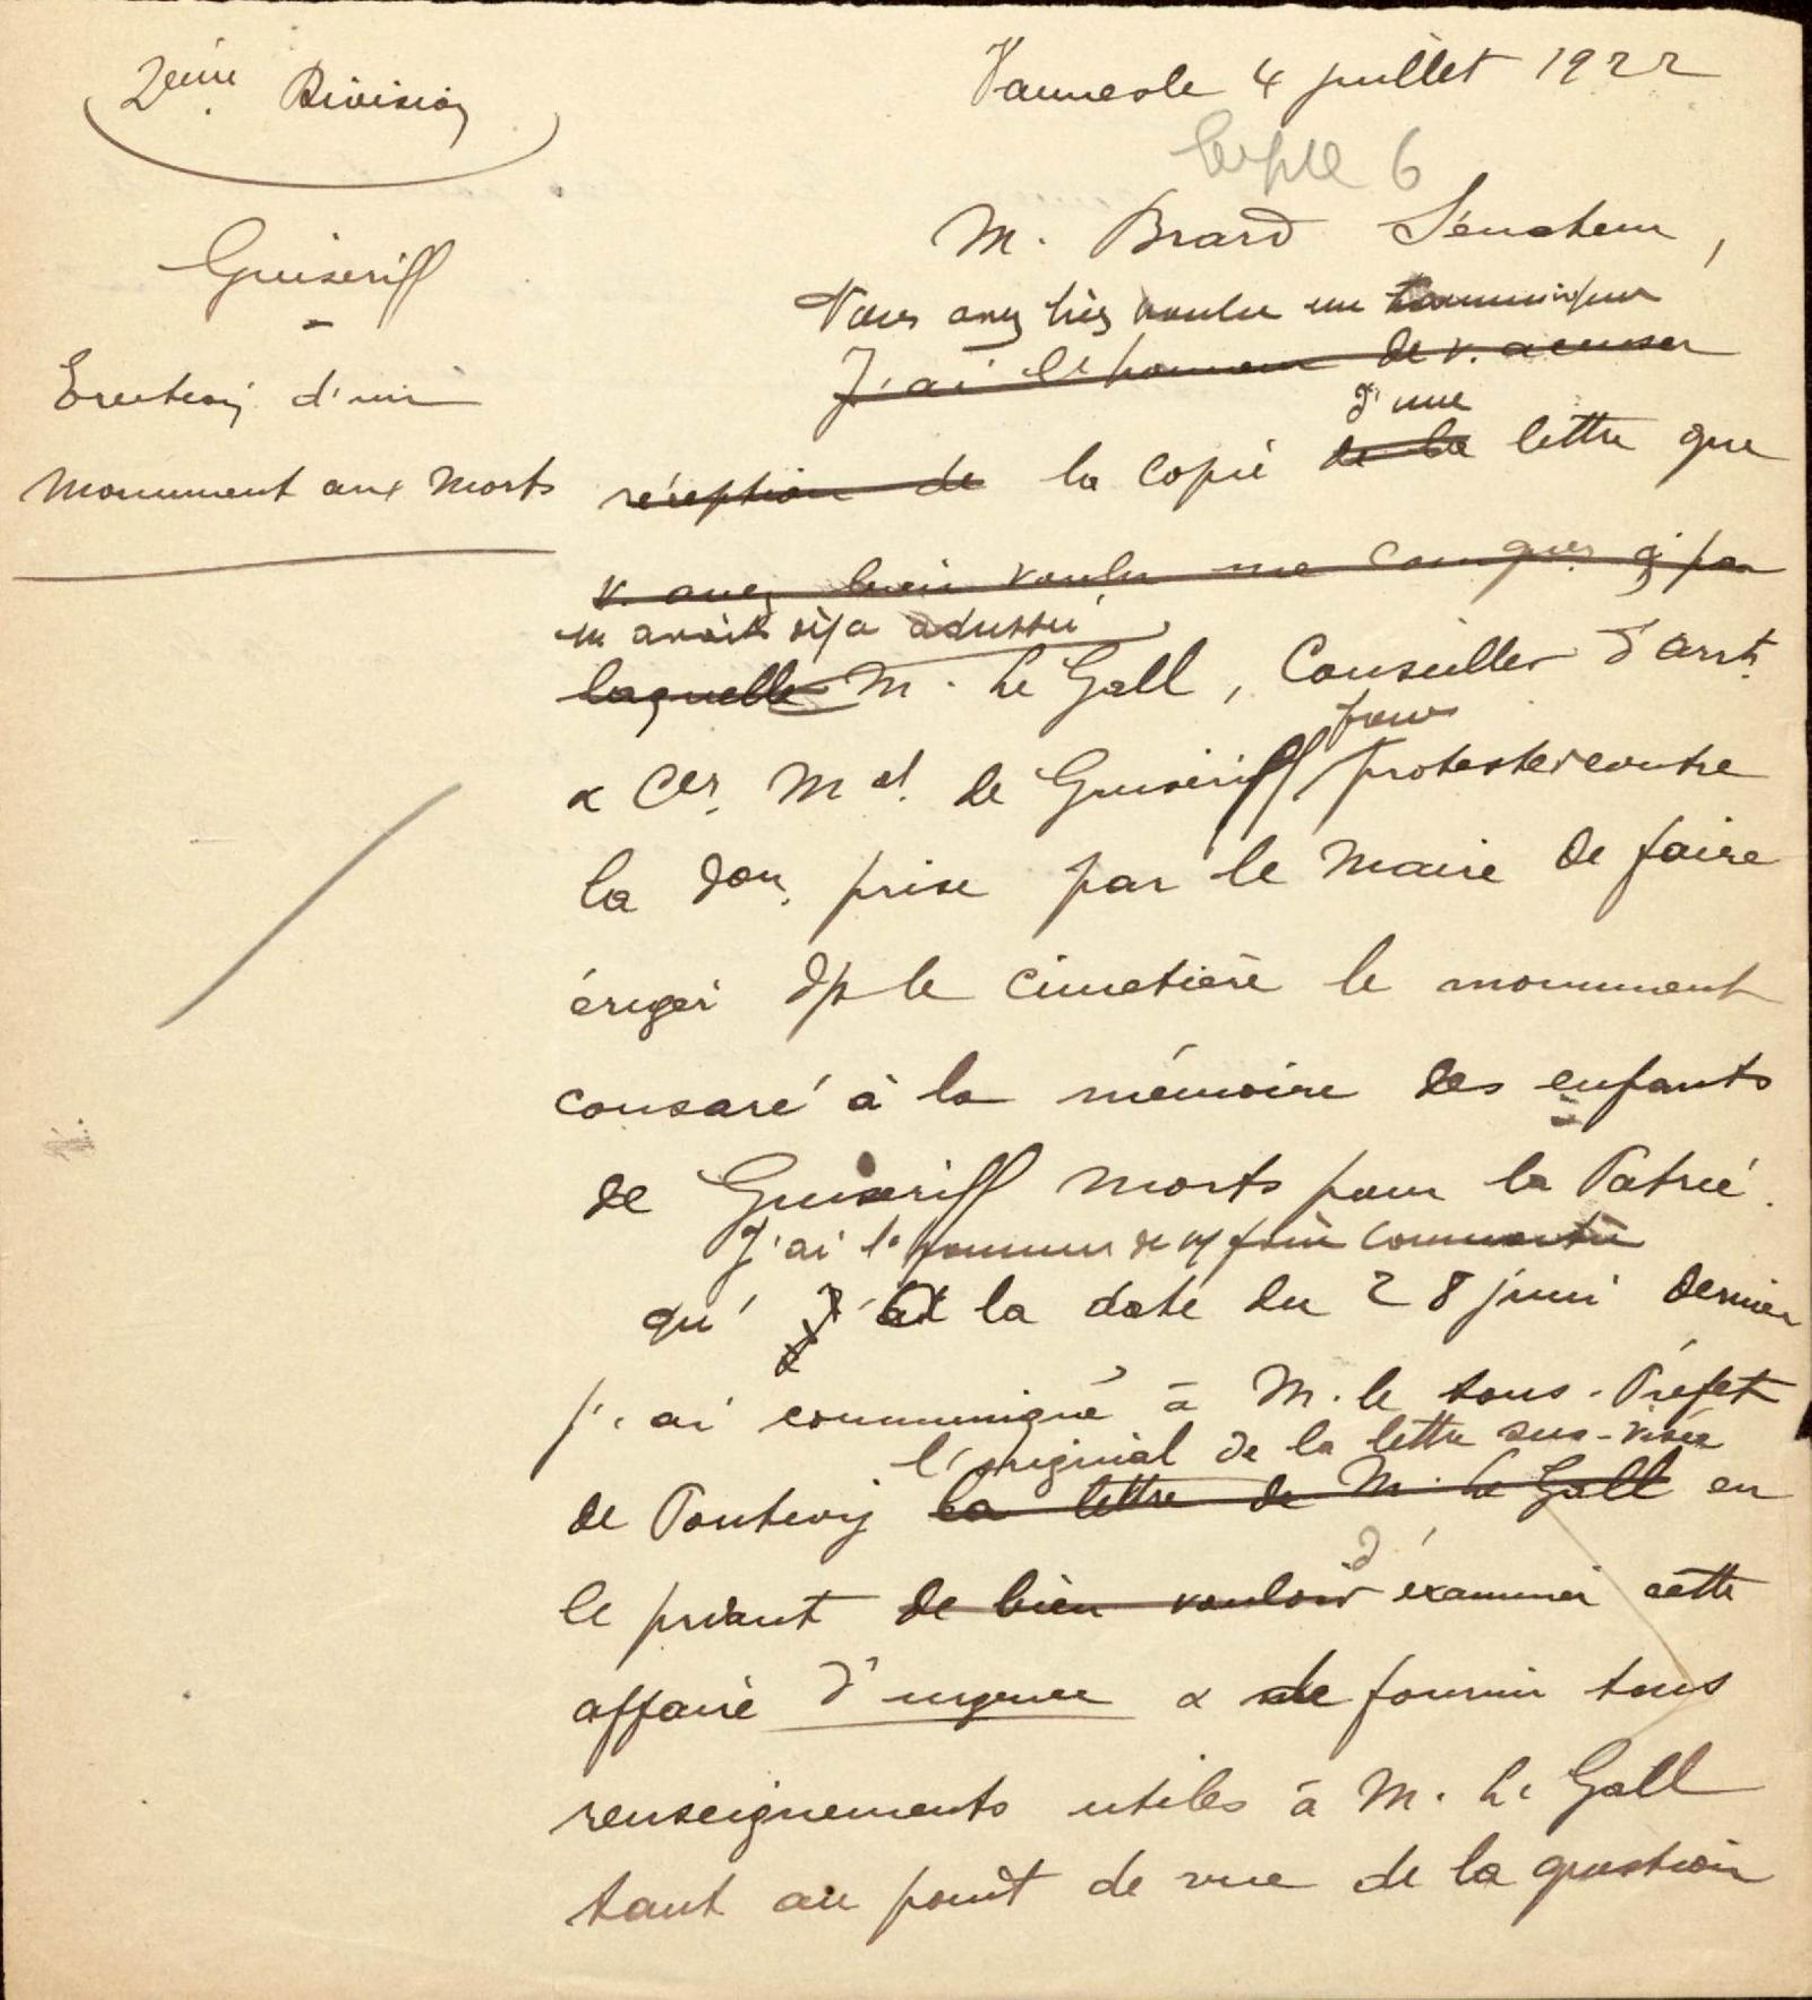 2ème Division
Vannes le 4 juillet 1922
6
M. Brard Sénateur,
Guiscriff
Vous avez bien voulu me communiquer
J'ai l'honneur de v. accuser
Erection d'un
d'une
Monument aux Morts
réception de la copie de la lettre que
v. avez bien voulu me par
m'avait déjà adressée
laquelle M. Le Gall, Conseiller d'arrt
& Cer. Mal. de Guiscriff pour protester contre
la don. prise par le Maire de faire
ériger ds le cimetière le monument
consacré à la mémoire des enfants
de Guiscriff morts pour la Patrie.
J'ai l'honneur de v. faire connaître
qu' à la date du 28 juin dernier
j'ai communiqué à M. le Sous-Préfet
l'original de la lettre sus-visée
de Pontivy la lettre de M. Le Gall en
le priant de bien vouloir d'examiner cette
affaire d'urgence & de fournir tous
renseignements utiles à M. Le Gall
tant au point de vue de la question